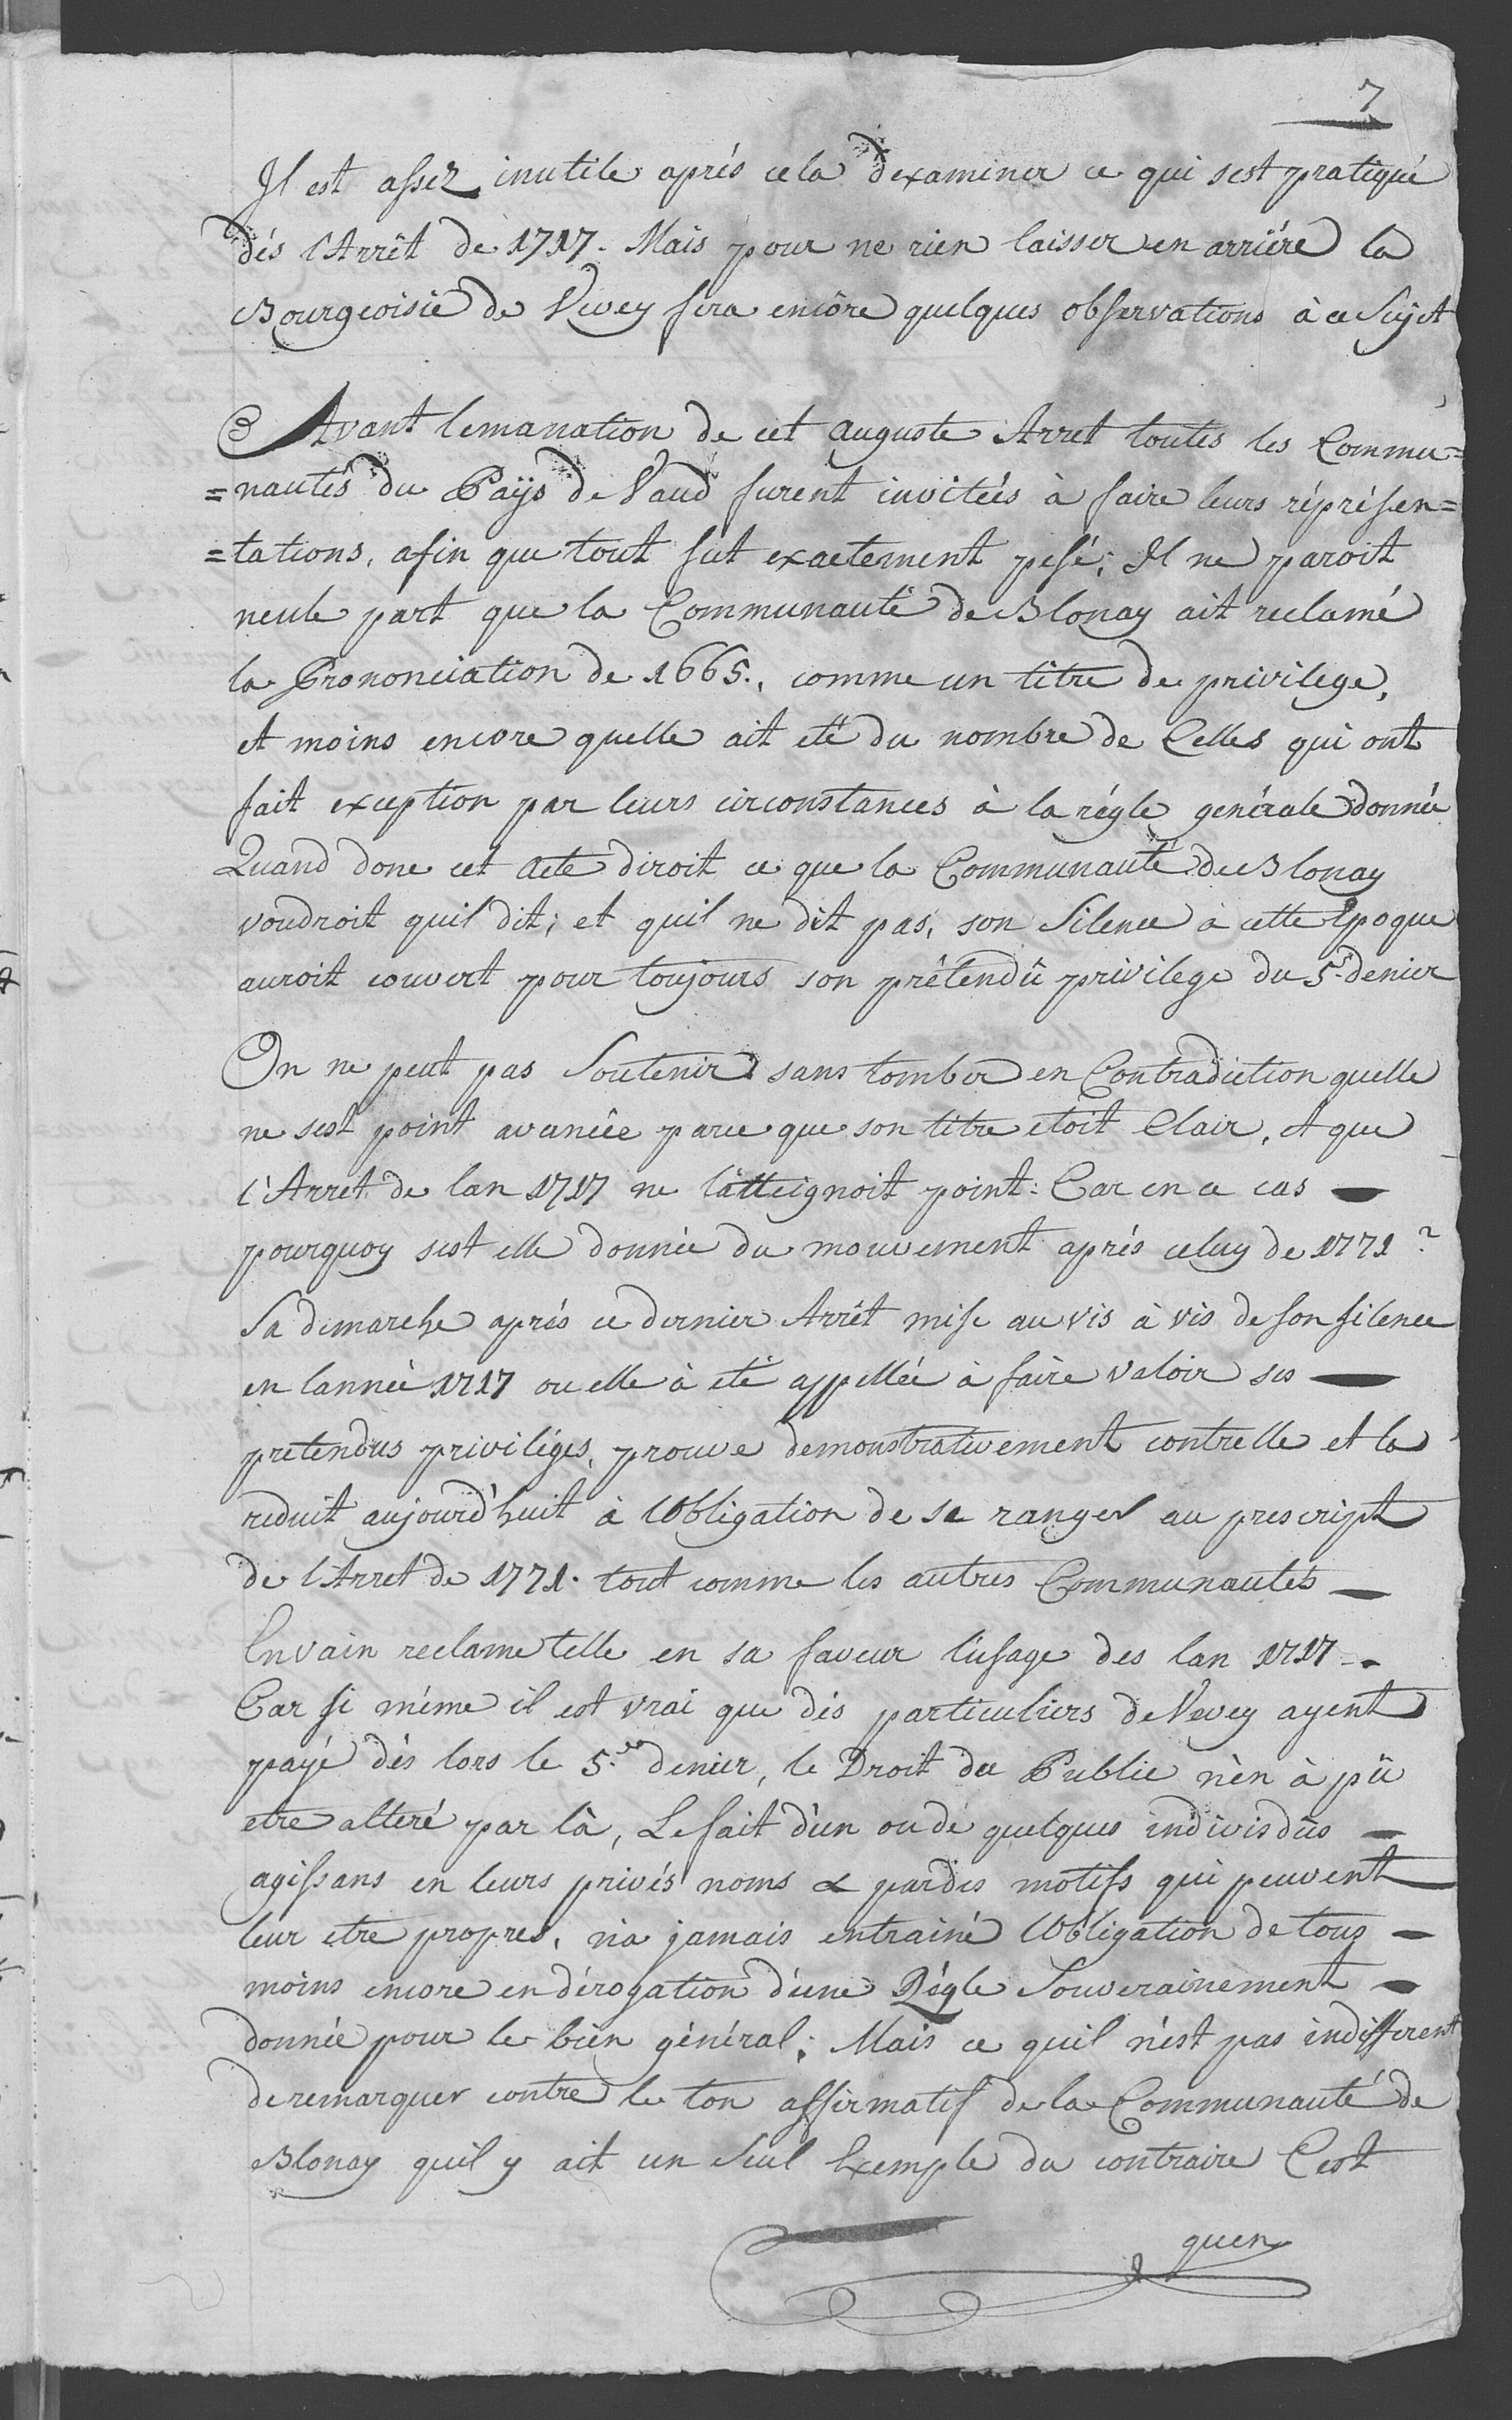 7
Il est assez inutile aprés cela d'examiner ce qui sest pratiqué
dés l'Arrêt de 1717. Mais pour ne rien laisser en arriére la
Bourgeoisie de Vevey fera encôre quelques observations à ce Sujet
Avant lemanation de cet auguste Arret toutes les Commu=
=nautés du Païs de Vaud furent invitées à faire leurs réprésen=
=tations, afin que tout fut exactement pesé; Il ne paroit
neule part que la Communauté de Blonay ait reclamé
la Prononciation de 1665., comme un titre de privilege,
et moins encore quelle ait eté du nombre de Celles qui ont
fait exception par leurs circonstances à la régle generale donnée
Quand donc cet acte diroit ce que la Communauté de Blonay
voudroit quil dit; et quil ne dit pas, son Silence à cette Epoque
auroit couvert pour toujours son prêtendû privilege du 5.e denier
On ne peut pas Soutenir sans tomber en Contradiction quelle
ne sest point avancée parce que son titre etoit Clair, et que
l'Arret de lan 1717 ne l'atteignoit point: Car en ce cas —
pourquoy sest elle donnée du mouvement aprés celuy de 1771?
Sa demarche aprés ce dernier Arrêt mise au vis à vis de son silence
en lannée 1717 ou elle à eté appellée à faire valoir ses —
pretendus priviléges, prouve demonstrativement contrelle et la
reduit aujourd'huit à lObligation de se ranger au prescript
de l'Arret de 1771. tout comme les autres Communautés —
Envain reclame telle en sa faveur l'usage des lan 1717 -.
Car si même il est vrai que dés particuliers de Vevey ayent
payé dés lors le 5.e denier, le Droit du Public n'en à pû
etre alteré par là, Le fait d'un ou de quelques indivisdûs —
agissans en leurs privés noms & par des motifs qui peuvent
leur etre propres, n'a jamais entrainé lObligation de tous —
moins encore en dérogation d'une Régle Souverainement —
donnée pour le bien général; Mais ce quil n'est pas indifferent
de remarquer contre le ton affirmatif de la Communauté de
Blonay quil y ait un Seul Exemple du contraire C'est
quen